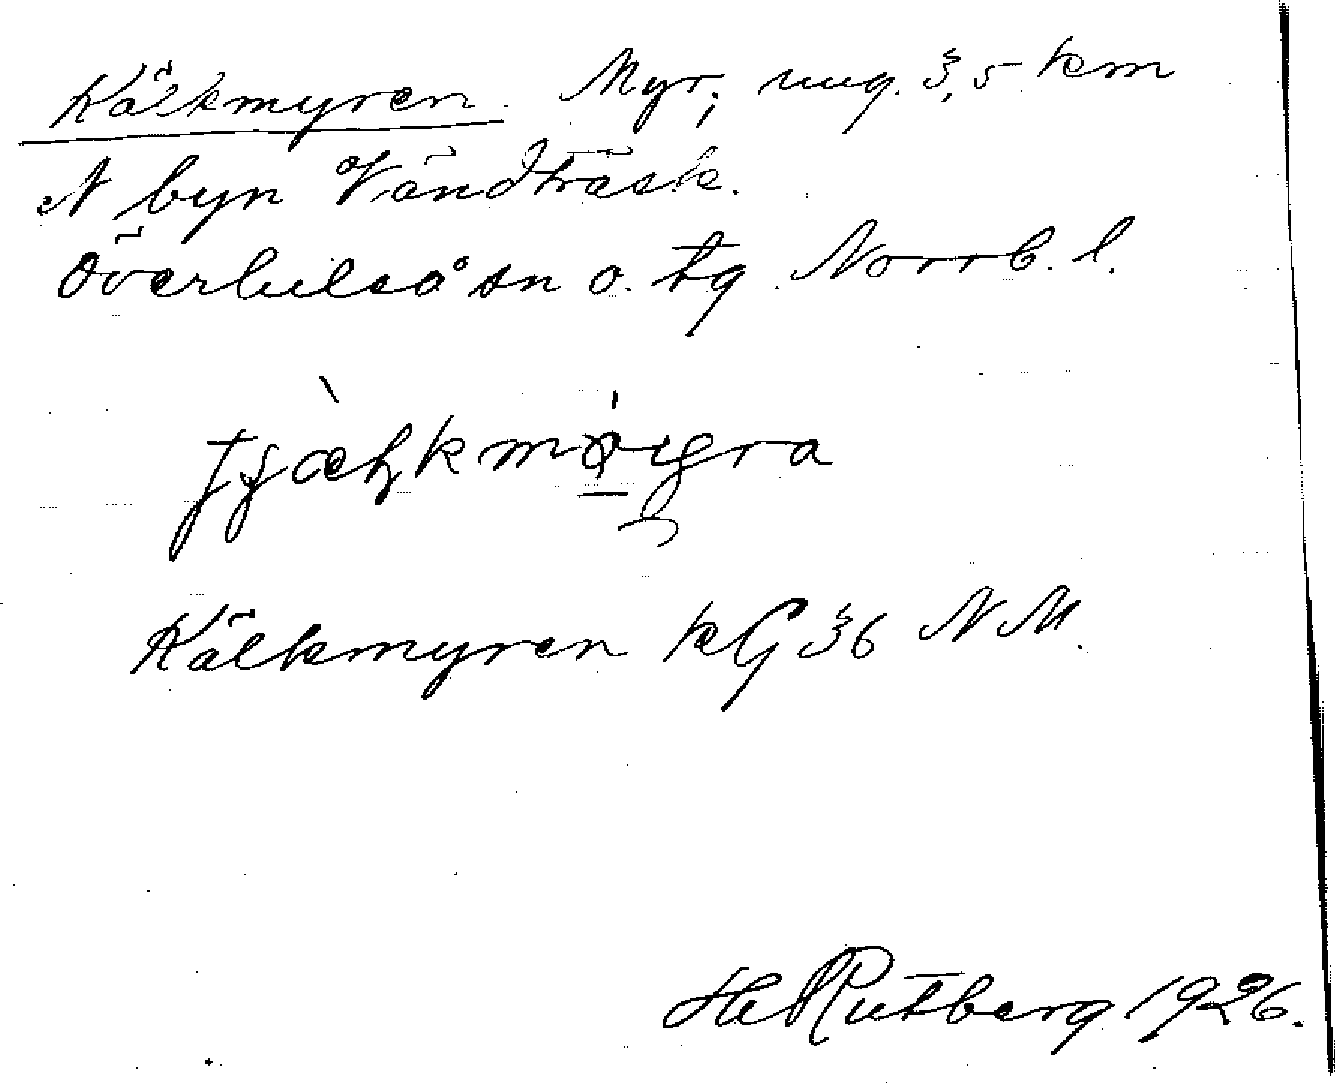 Kälkmyren. Myr; ung. 3,5 km
N byn Vändträsk.
Överluleå sn o. tg. Norrb. l.
Kälkmyren kG 36 NM.
H Rutberg 1926.